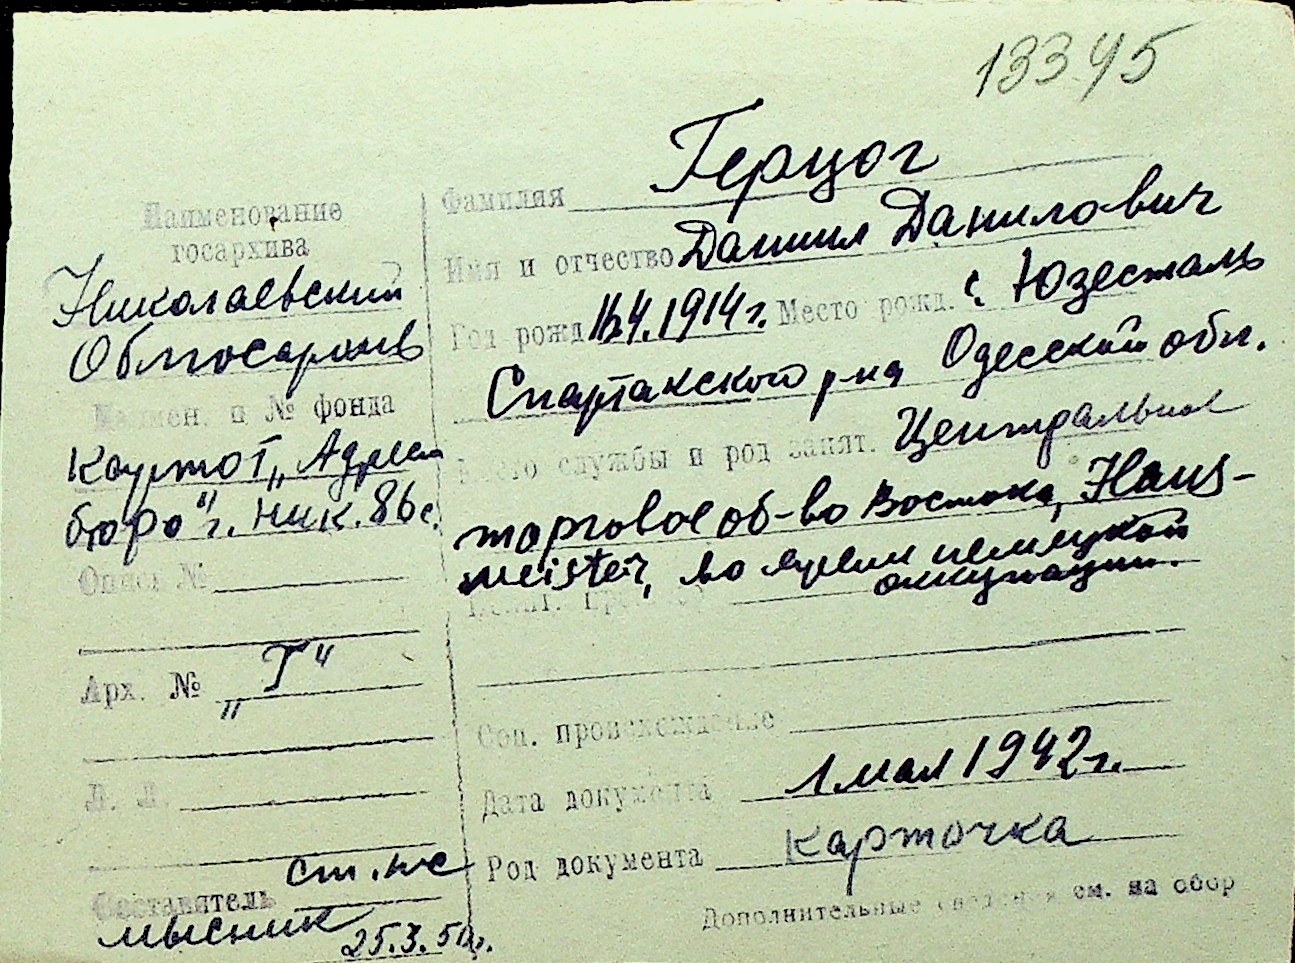 13345
Наименование
госархива
Николаевский
Облгосархив
Наимен. и № фонда
Картот. „Адресн
бюро" г. Ник. 86 с.
Опись №
Арх. № „Г"
Л. Л.
Составитель ст. н/с
Мысник
25.3.50 г.
Фамилия Герцог
Имя и отчество Даниил Данилович
Год рожд. 4.1914 г. Место рожд. с. Юзесталь
Спартакского р-на Одесской обл.
Место службы и род занят. Центральное
торговое об-во Востока, Haus-
meister, во время немецкой
оккупации.
Соц. происхождение
Дата документа 1 мая 1942 г.
Род документа карточка
Дополнительные сведения см. на обор